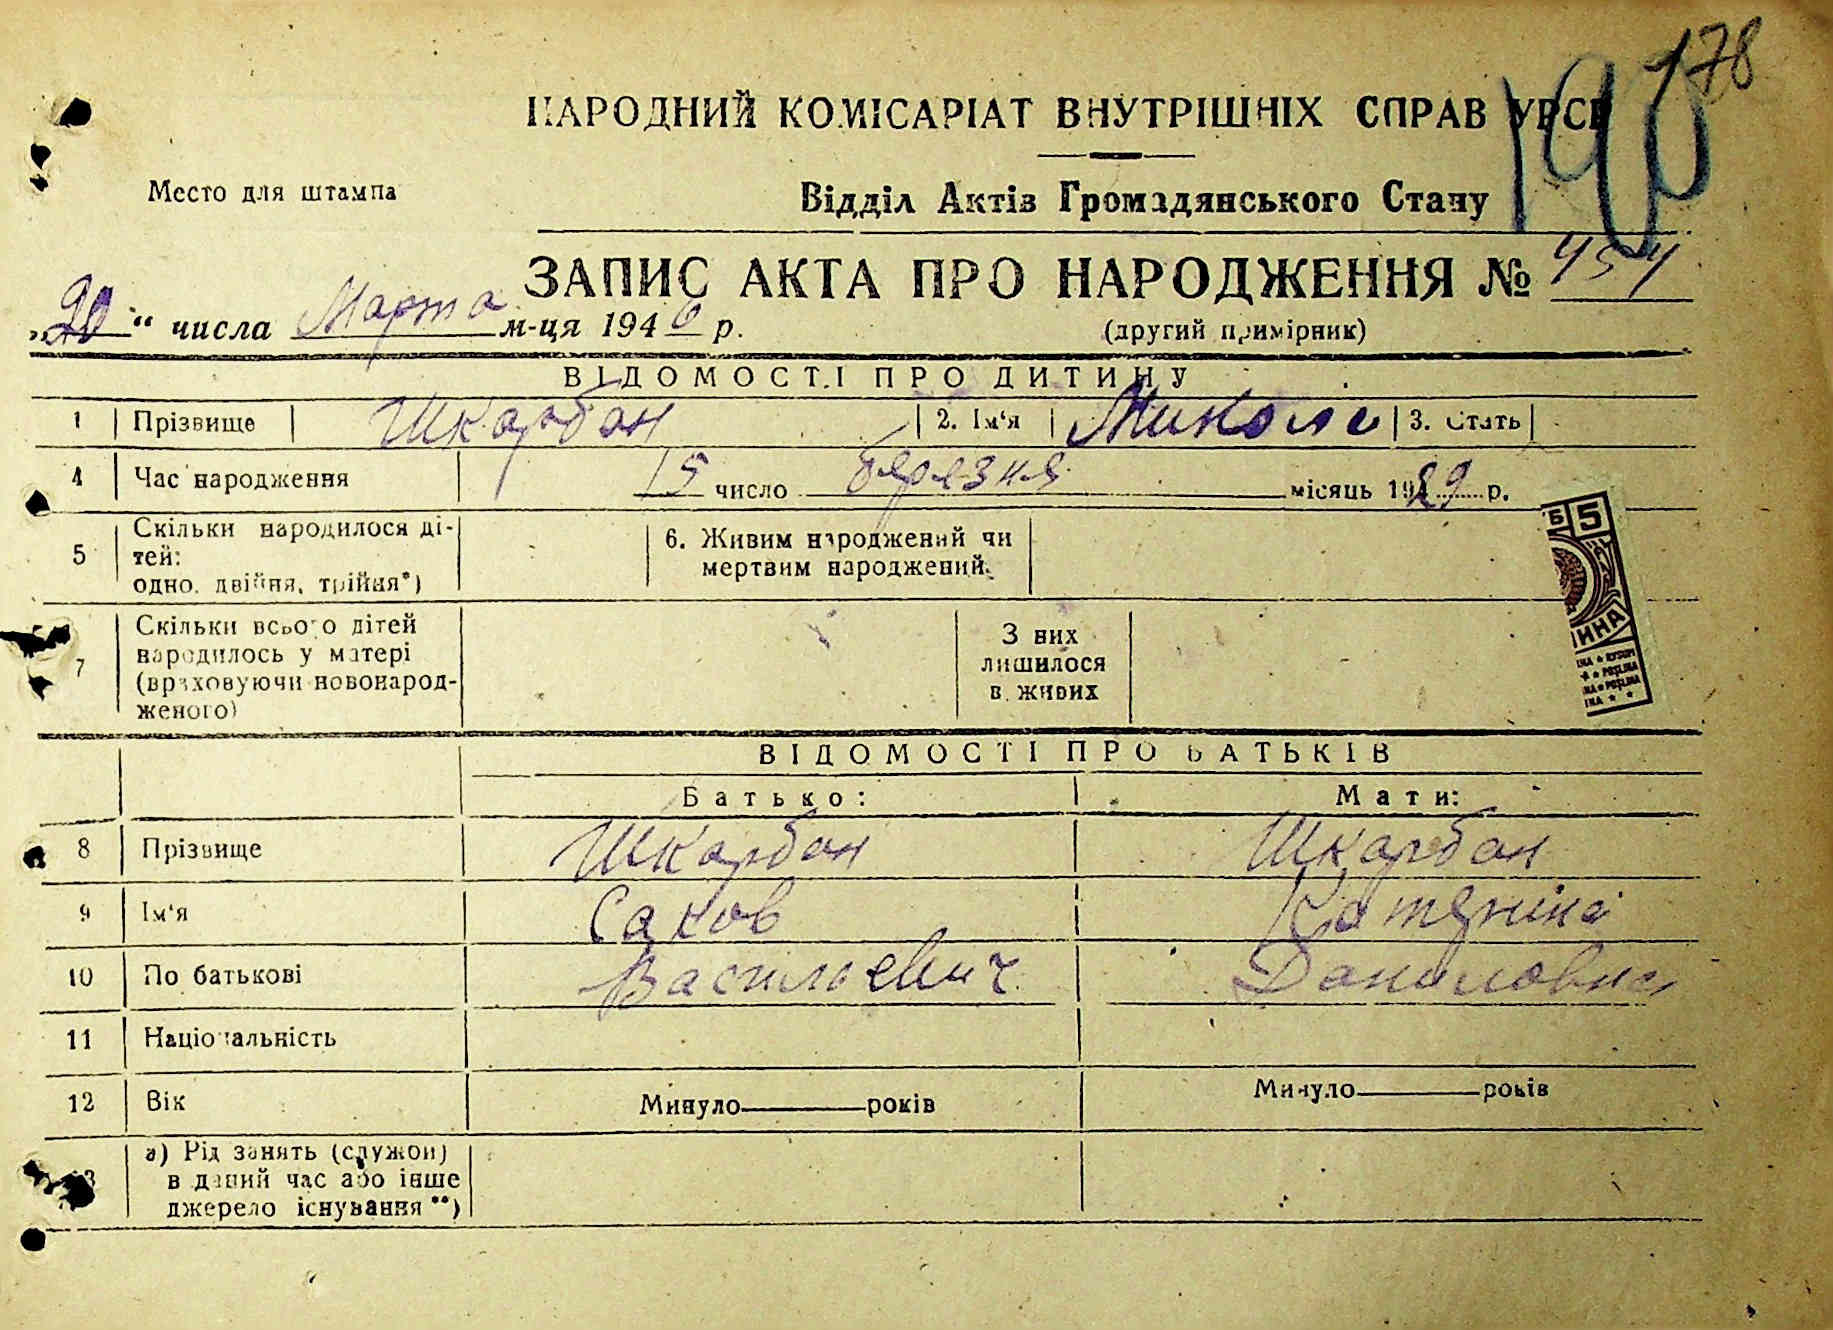 178
190
НАРОДНИЙ КОМІСАРІАТ ВНУТРІШНІХ СПРАВ УРСР
Место для штампа
Відділ Актів Громадянського Стану
ЗАПИС АКТА ПРО НАРОДЖЕННЯ № 454
„20“ числа Марта м-ця 1946 р.
(другий примірник)
ВІДОМОСТІ ПРО ДИТИНУ
1 Прізвище Шкарбан 2. Ім'я Микола 3. Стать
4 Час народження 15 число березня місяць 1929 р.
5 Скільки народилося ді-
тей:
одно, двійня, трійня*)
6. Живим народжений чи
мертвим народжений.
7 Скільки всього дітей
народилось у матері
(враховуючи новонарод-
женого)
З них
лишилося
в живих
Б 5
ИНА
ВІДОМОСТІ ПРО БАТЬКІВ
Батько: Мати:
8 Прізвище Шкарбан Шкарбан
9 Ім'я Саков Катерина
10 По батькові Васильевич Даниловна
11 Національність
12 Вік Минуло років Минуло років
13 а) Рід занять (служби)
в даний час або інше
джерело існування **)